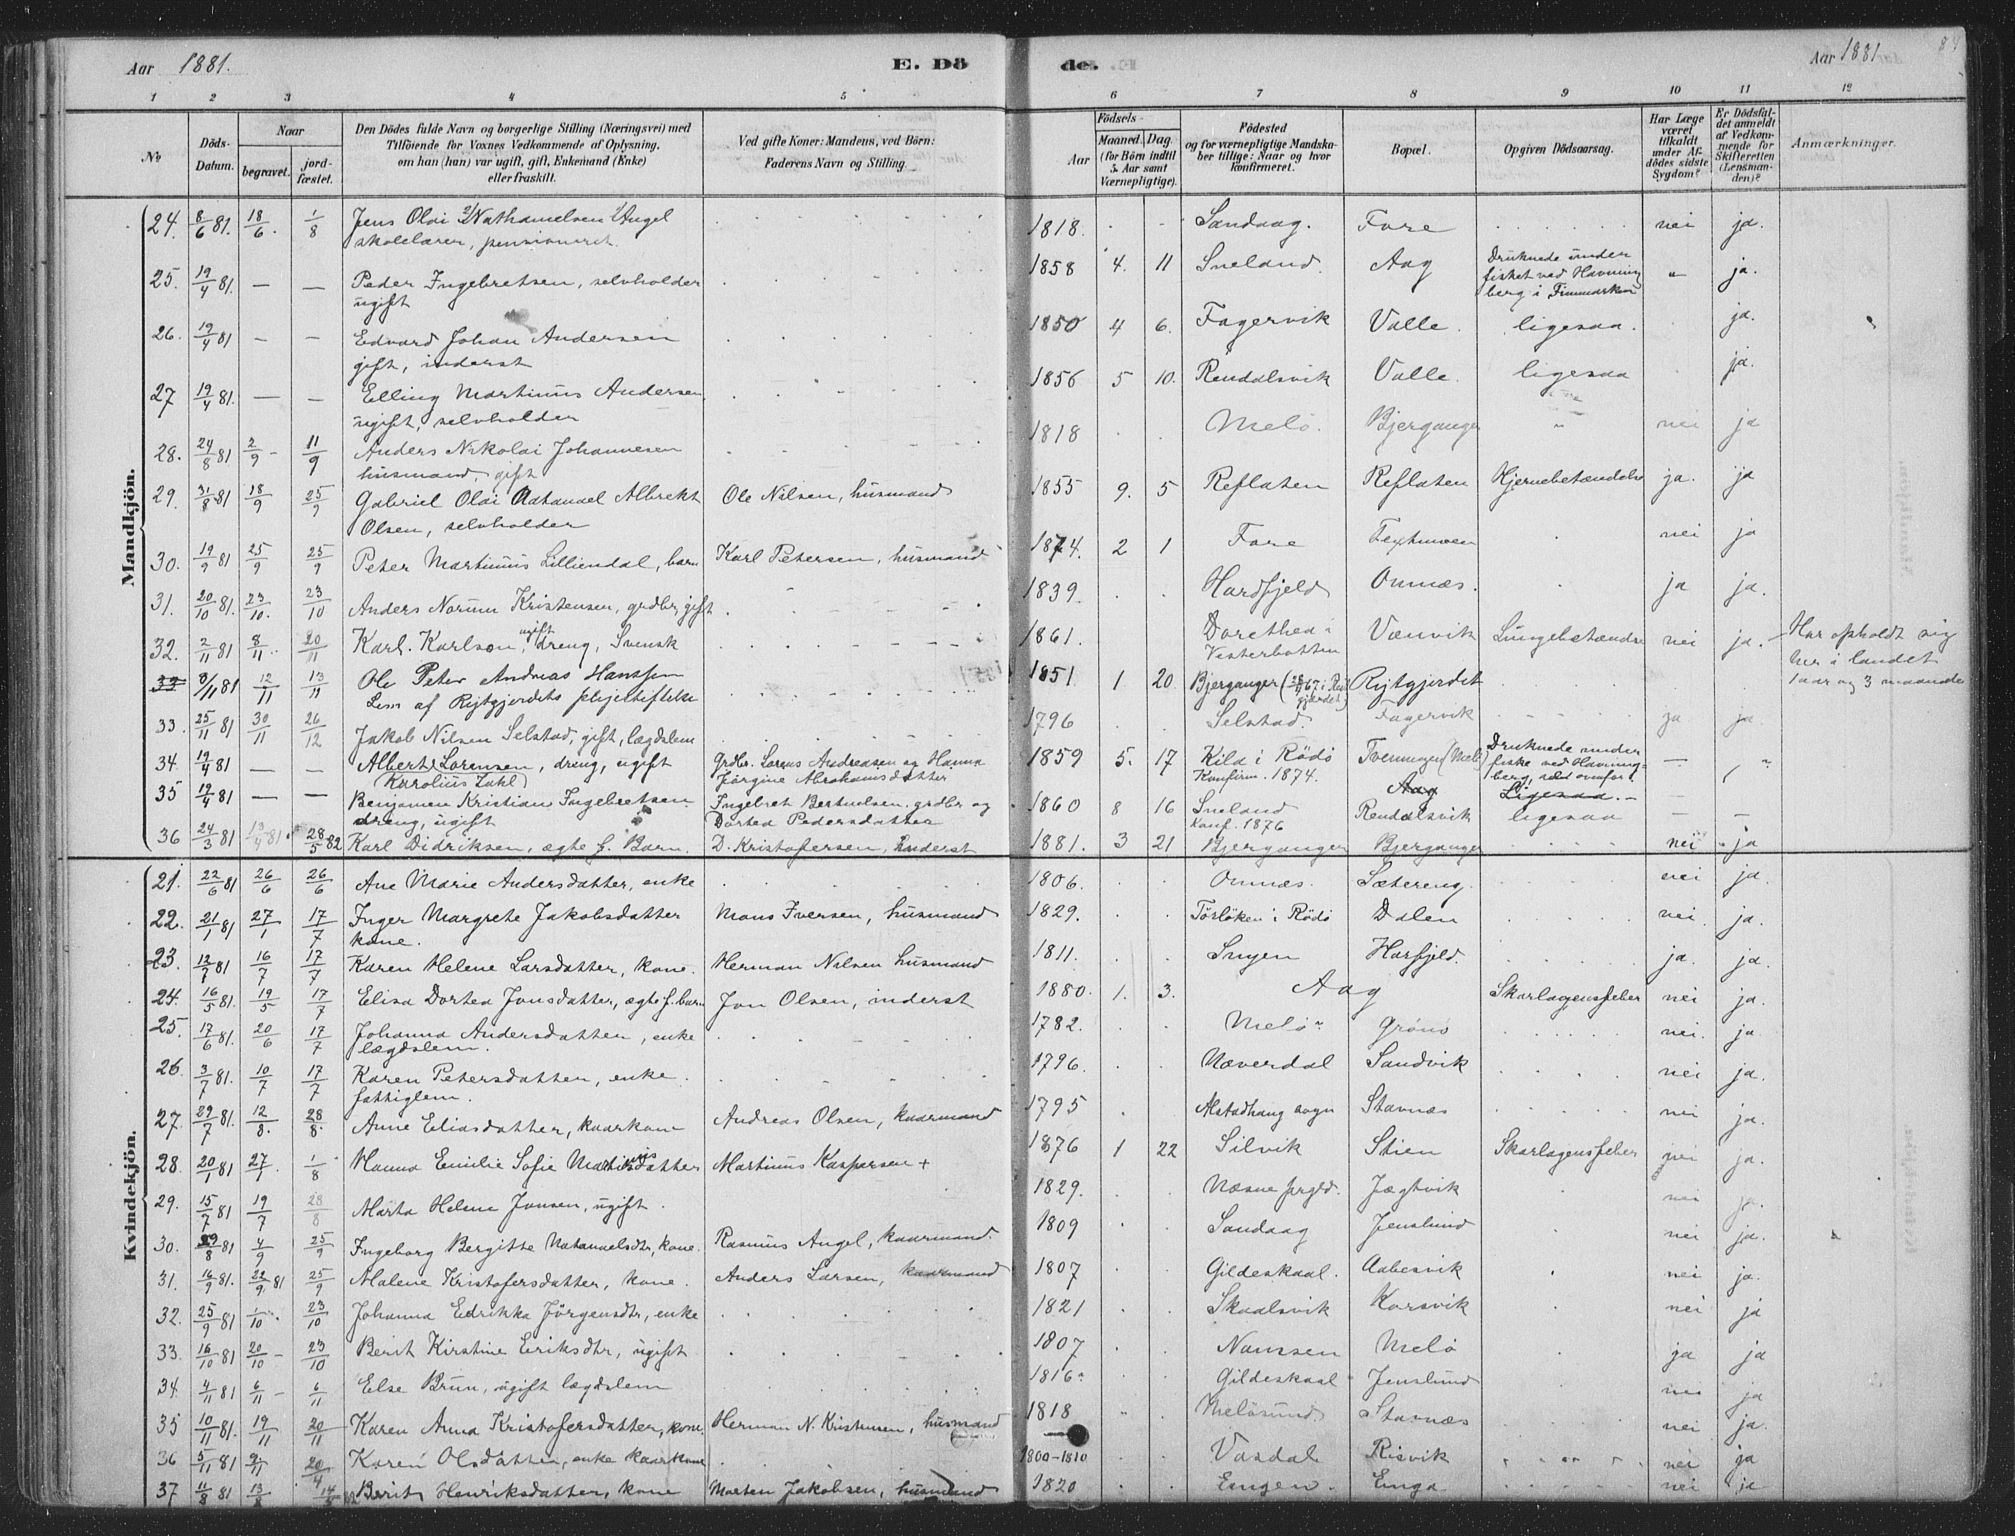 Aar 1881. E. Dö
de. Aar 1881.
1 2 3 4 5
6 7 8 9 10 11 12
No
Döds-Datum.
Naar
begravet.
jord-fæstet.
Den Dödes fulde Navn og borgerlige Stilling (Næringsvei) med
Tilföiende for Voxnes Vedkommende af Oplysning,
om han (hun) var ugift, gift, Enkemand (Enke)
eller fraskilt.
Ved gifte Koner: Mandens, ved Börn:
Faderens Navn og Stilling.
Födsels-
Aar
Maaned. Dag.
(for Börn indtil
5. Aar samt
Værnepligtige).
Födested
og for værnepligtige Mandska-
ber tillige: Naar og hvor
konfirmeret.
Bopæl.
Opgiven Dödsaarsag.
Har Læge
været
tilkaldt
under Af-
dödes sidste
Sygdom?
Er Dödsfal-
det anmeldt
af Vedkom-
mende for
Skifteretten
(Lensman-
den)?
Anmærkninger.
Mandkjön.
24. 8/6 81. 18/6. 1/8 Jens Olai 2/Nathanielsen 1/Angel
skolelærer, pensioneret. 1818. Sandaag. Fore nei ja.
25. 19/4 81. — — Peder Ingebretsen, selvholder
ugift 1858 4. 11 Sneland. Aag Druknede under
fisket ved Havning
berg i Finmarken " ja.
26. 19/4 81 — — Edvard Johan Andersen
gift, inderst 1850 4 6. Fagervik Valle. ligesaa. ja.
27 19/4 81. — — Elling Martinus Andersen
ugift, selvholder 1856 5 10. Rendalsvik Valle. ligesaa ja.
28. 24/8 81 2/9 - 11/9 Anders Nikolai Johannesen
husmand, gift 1818 Melö. Bjerganger " nei ja
29. 31/8 81 18/9 25/9 Gabriel Olai Natanael Albrekt
Olsen, selvholder Ole Nilsen, husmand 1855 9. 5 Reflaten Reflaten Hjernebetændelse ja. ja
30. 19/9 81 25/9 25/9 Peter Martinus Lilliendal, barn Karl Petersen, husmand 1874. 2 1 Fore nei ja
31. 20/10 81. 23/10. 23/10 Anders Norum Kristensen, grdbr, gift 1839. Hardfjeld Onnæs. ja ja.
32. 2/11 81 8/11. 20/11 Karl. Karlson, ugift dreng, Svensk 1861. Dorethea i
Vesterbotten Vænvik Lungebetændse nei ja. Har opholdt sig
her i landet
1 aar og 3 maaneder
33 3/11 81 12/11 13/11 Ole Peter Andreas Hanssen
Lem af Rejtgjerdets plejestiftelse 1851. 1 20. Bjerganger Rejtgjerdet
33. 25/11 81 30/11 26/12 Jakob Nilsen Selstad, gift, lægdslem 1796 Selstad Fagervik ja ja.
34. 19/4 81 — — Albert Lorensen, dreng, ugift
(Karolius Zahl) Grdbr. Lorens Andreasen og Hanna
Jörgine Abrahamsdatter 1859 5. 17 Kila i Rödö
Konfirm. 1874. Tvenningen (Melö) Druknede under
fiske ved Havning-
berg, — "
35 19/4 81 — — Benjamen Kristian Ingebretsen
dreng, ugift Ingebret Bertnelsen. grdbr og
Dortea Pedersdatter 1860 8 16 Sneland
Konf. 1876 Aag
Rendalsvik Ligesaa. -
ligesaa — —
36 24/3 81 13/4 81. 28/5 82 Karl Didriksen, ægte f. Barn. D. Kristofersen, Inderst 1881. 3 21 Bjerganger Bjerganger nei ja
Kvindekjön.
21. 22/6 81 26/6 26/6 Ane Marie Andersdatter, enke 1806. Onnæs. Sætereng. nei ja.
22. 21/1 81 27/1 17/7 Inger Margrete Jakobsdatter
kone. Mons Iversen, husmand 1829. Törlöken i Rödö Dalen nei ja.
23. 12/7 81 16/7 17/7 Karen Helene Larsdatter, kone. Herman Nilsen husmand 1811. Snyen Harfjeld. ja. ja.
24. 16/5 81. 19/5 17/7 Elisa Dortea Jonsdatter, ægte f. barn Jon Olsen, inderst 1880. 1. 3. Aag Skarlagensfeber nei ja.
25. 17/6 81. 20/6 17/7 Johanna Andersdatter, enke
lægdslem. 1782. Melö Grönö nei. ja.
26. 3/7 81. 10/7 17/7 Karen Petersdatter, enke.
fattiglem. 1796. Næverdal Sandvik nei ja.
27. 29/7 81. 12/8. 28/8. Anne Eliasdatter, kaarkone Andreas Olsen, kaarmand 1795 Alstadhaug sogn Stavnæs nei ja.
28. 20/1 81 27/1. 1/8 Hanna Emilie Sofie Martinusdatter Martinus Kaspersen + 1876 1 22 Silvik Stien Skarlagensfeber nei ja.
29. 15/7 81 19/7 28/8 Marta Helene Jonsen, ugift. 1829. Næsne prgld. Jægtvik nei ja.
30. 29/8 81 4/9 25/9 Ingeborg Bergitte Natanaelsdtr, kone. Rasmus Angel, kaarmand. 1809 Sandaag Jenslund nei ja.
31. 16/9 81. 22/9 81 25/9 Malene Kristofersdatter, kone. Anders Larsen, kaarmand 1807 Gildeskaal. Aabesvik nei ja.
32. 25/9 81 1/10. 23/10 Johanna Edrikka Jörgensdtr, enke 1821 Skaalsvik Korsvik nei ja
33. 16/10 81 20/10 - 23/10 Berit Kirstine Eriksdtr, ugift 1807 Namsen Melö ja ja
34. 4/11 81 6/11 - 6/11 Else Brun, ugift lægdslem 1816 Gildeskaal Jenslund nei ja
35 10/11 81. 19/11 20/11 Karen Anna Kristofersdatter, kone. Herman N. Kristensen, husmand 1818 Melösund Stavnæs nei ja.
36 5/11 81 9/11 20/4 Karen Olsdatter, enke kaarkone 1800-1810 Vasdal Risvik nei ja
37 11/8 81 13/8 14/8 82 Berit Henriksdatter, kone Morten Jakobsen, husmand 1820 Engen. Enga nei ja